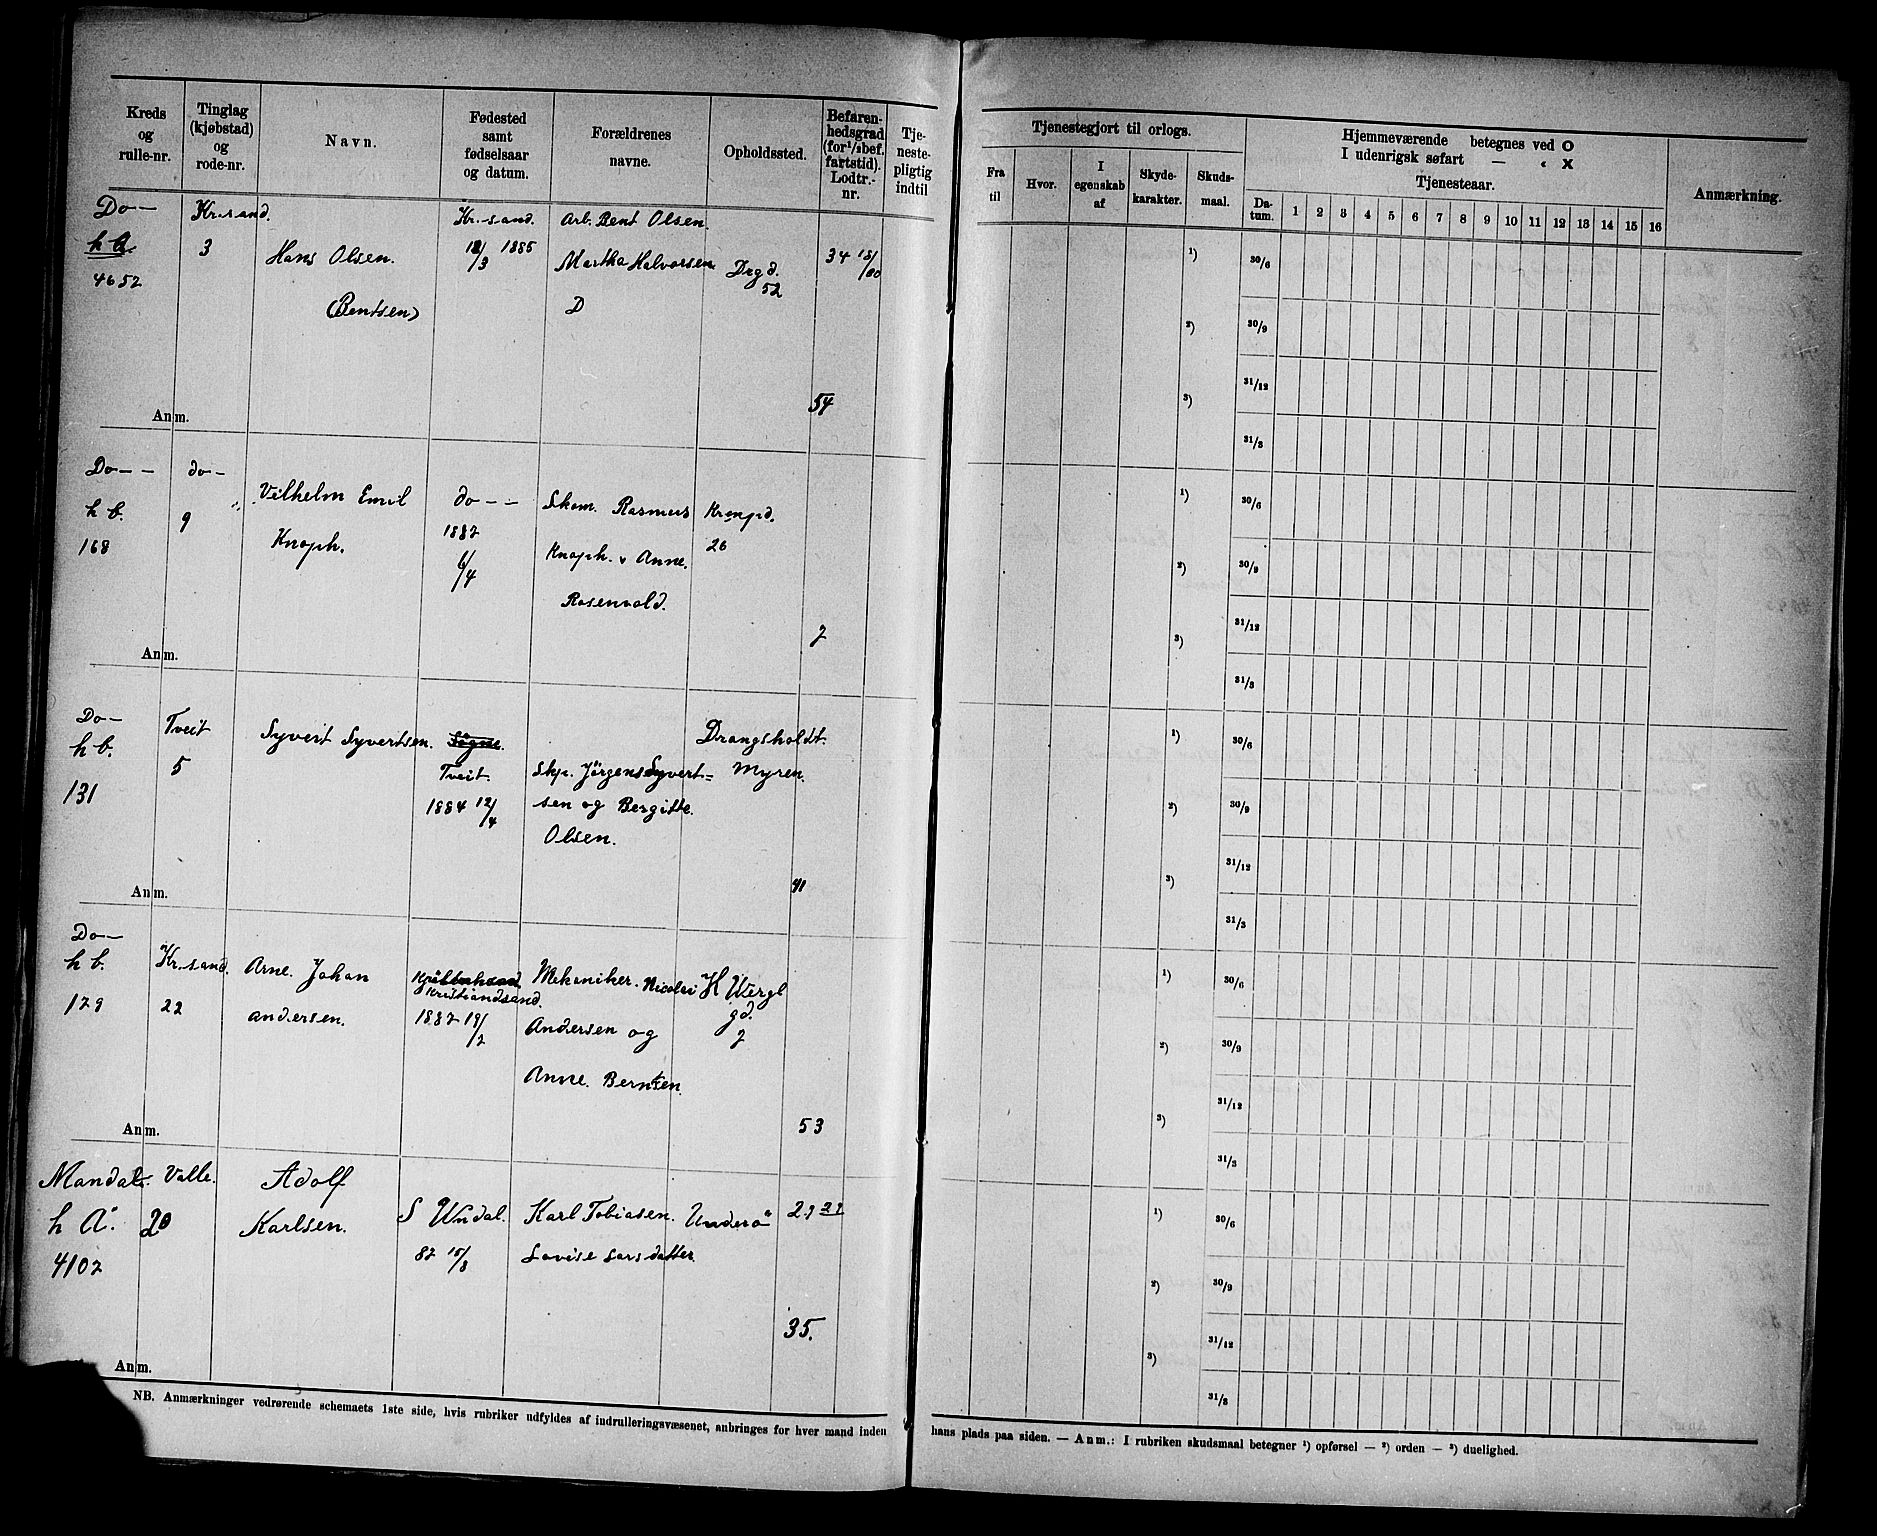 Kreds og rulle-nr.
Tinglag (kjøbstad) og rode-nr.
Navn.
Fødested samt fødselsaar og datum.
Forældrenes navne.
Opholdssted.
Befaren-hedsgrad (for 1/2 bef. fartstid). Lodtr.-nr.
Tje-neste-pligtig indtil
Tjenestegjort til orlogs.
Fra til
Hvor.
I egenskab af
Skyde-karakter.
Skuds-maal.
Hjemmeværende betegnes ved O
I udenrigsk søfart — « X
Tjenesteaar.
Da-tum. 1 2 3 4 5 6 7 8 9 10 11 12 13 14 15 16
Anmærkning.
Do — Kr.sand. Kr.sand. Arb. Bent Olsen.
3 Hans Olsen. 1885 Martha Halvorsen Drgd. 34
4652 52
(Bentsen) D
54
Anm.
1) 30/6
2) 30/9
31/12
3)
31/3
Do — — do — Vilhelm Emil do — — Skom. Rasmus
h b. 9 Knoph. 1882 Knoph. v Anne.
168 6/4 26
Rosenvold.
2
Anm.
1) 30/6
2) 30/9
31/12
3)
31/3
Do — Tveit Syvert Syvertsen. Søgne. Drangsholdt.
h b. 5 Tveit. Skp. Jörgen Syvert= Myren.
131 1884 12/4 sen og Bergitte.
Olsen.
41
Anm.
1) 30/6
2) 30/9
31/12
3)
31/3
Do —
h b. Kr.sand. Arne. Johan Kristiandsand. Mekaniker. Nicolai H Wergl
179 22 andersen. 1882 19/2 Andersen og gd.
2
Anne. Berntsen.
53
Anm.
1) 30/6
2) 30/9
31/12
3)
31/3
Mandal. Valle. Adolf
h A. 20 Karlsen. S Undal. Karl Tobiasen. Underö
4102 82 15/8 Lovise Larsdatter.
35.
Anm.
1) 30/6
2) 30/9
31/12
3)
31/3
NB. Anmærkninger vedrørende schemaets 1ste side, hvis rubriker udfyldes af indrulleringsvæsenet, anbringes for hver mand inden hans plads paa siden. — Anm.: I rubriken skudsmaal betegner 1) opførsel — 2) orden — 3) duelighed.